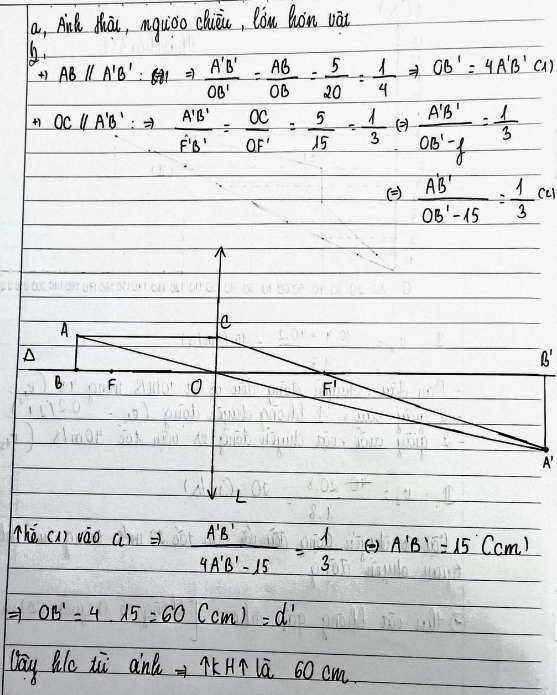 a, Ảnh thật, ngược chiều, lớn hơn vật
b,
+) AB // A'B' : => A'B'/OB' = AB/OB = 5/20 = 1/4 => OB' = 4A'B' (1)
+) OC // A'B' : => A'B'/F'B' = OC/OF' = 5/15 = 1/3 (=) A'B'/OB'-f = 1/3
(=) A'B'/OB'-15 = 1/3 (2)
A C
Δ B F O F' B'
A'
L
Thế (1) vào (2) => A'B'/4A'B'-15 = 1/3 (=) A'B' = 15 (cm)
=> OB' = 4 . 15 = 60 (cm) = d'
Vậy k/c từ ảnh → TKHT là 60 cm.